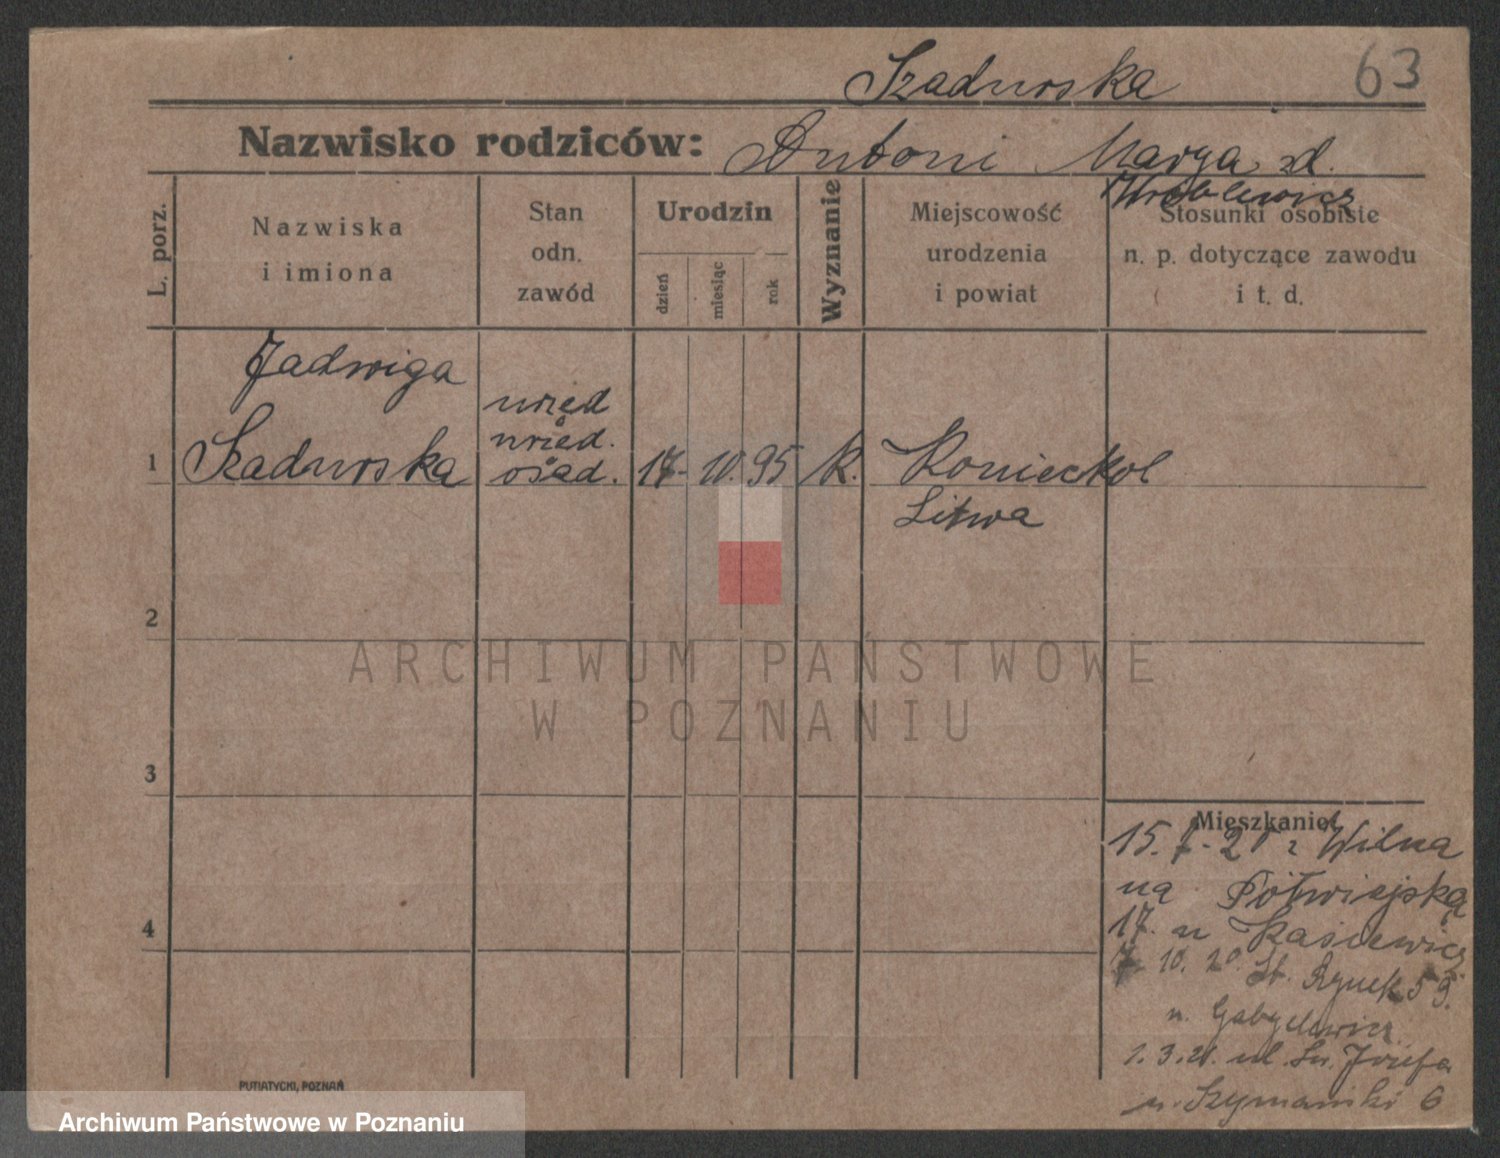 63
Szadurska
Nazwisko rodziców: Antoni Marya zd.
Wróblewicz
L. porz.
Nazwiska
i imiona
Stan
odn.
zawód
Urodzin
dzień
miesiąc
rok
Wyznanie
Miejscowość
urodzenia
i powiat
Stosunki osobiste
n. p. dotyczące zawodu
i t. d.
Jadwiga
1 Szadurska
urzęd
urzęd.
osad.
17. 10. 95 k. Konieckol
Litwa
2
3
4
ARCHIWUM PAŃSTWOWE
W POZNANIU
Mieszkanie:
15. 7. 20 z Wilna
na Półwiejską
17. u Kasiewicz
7. 10. 20. St. Rynek 55.
u. Gabryelewicz
1. 3. 21. ul. Św. Józefa
u. Szymański 6
PUTIATYCKI, POZNAŃ
Archiwum Państwowe w Poznaniu